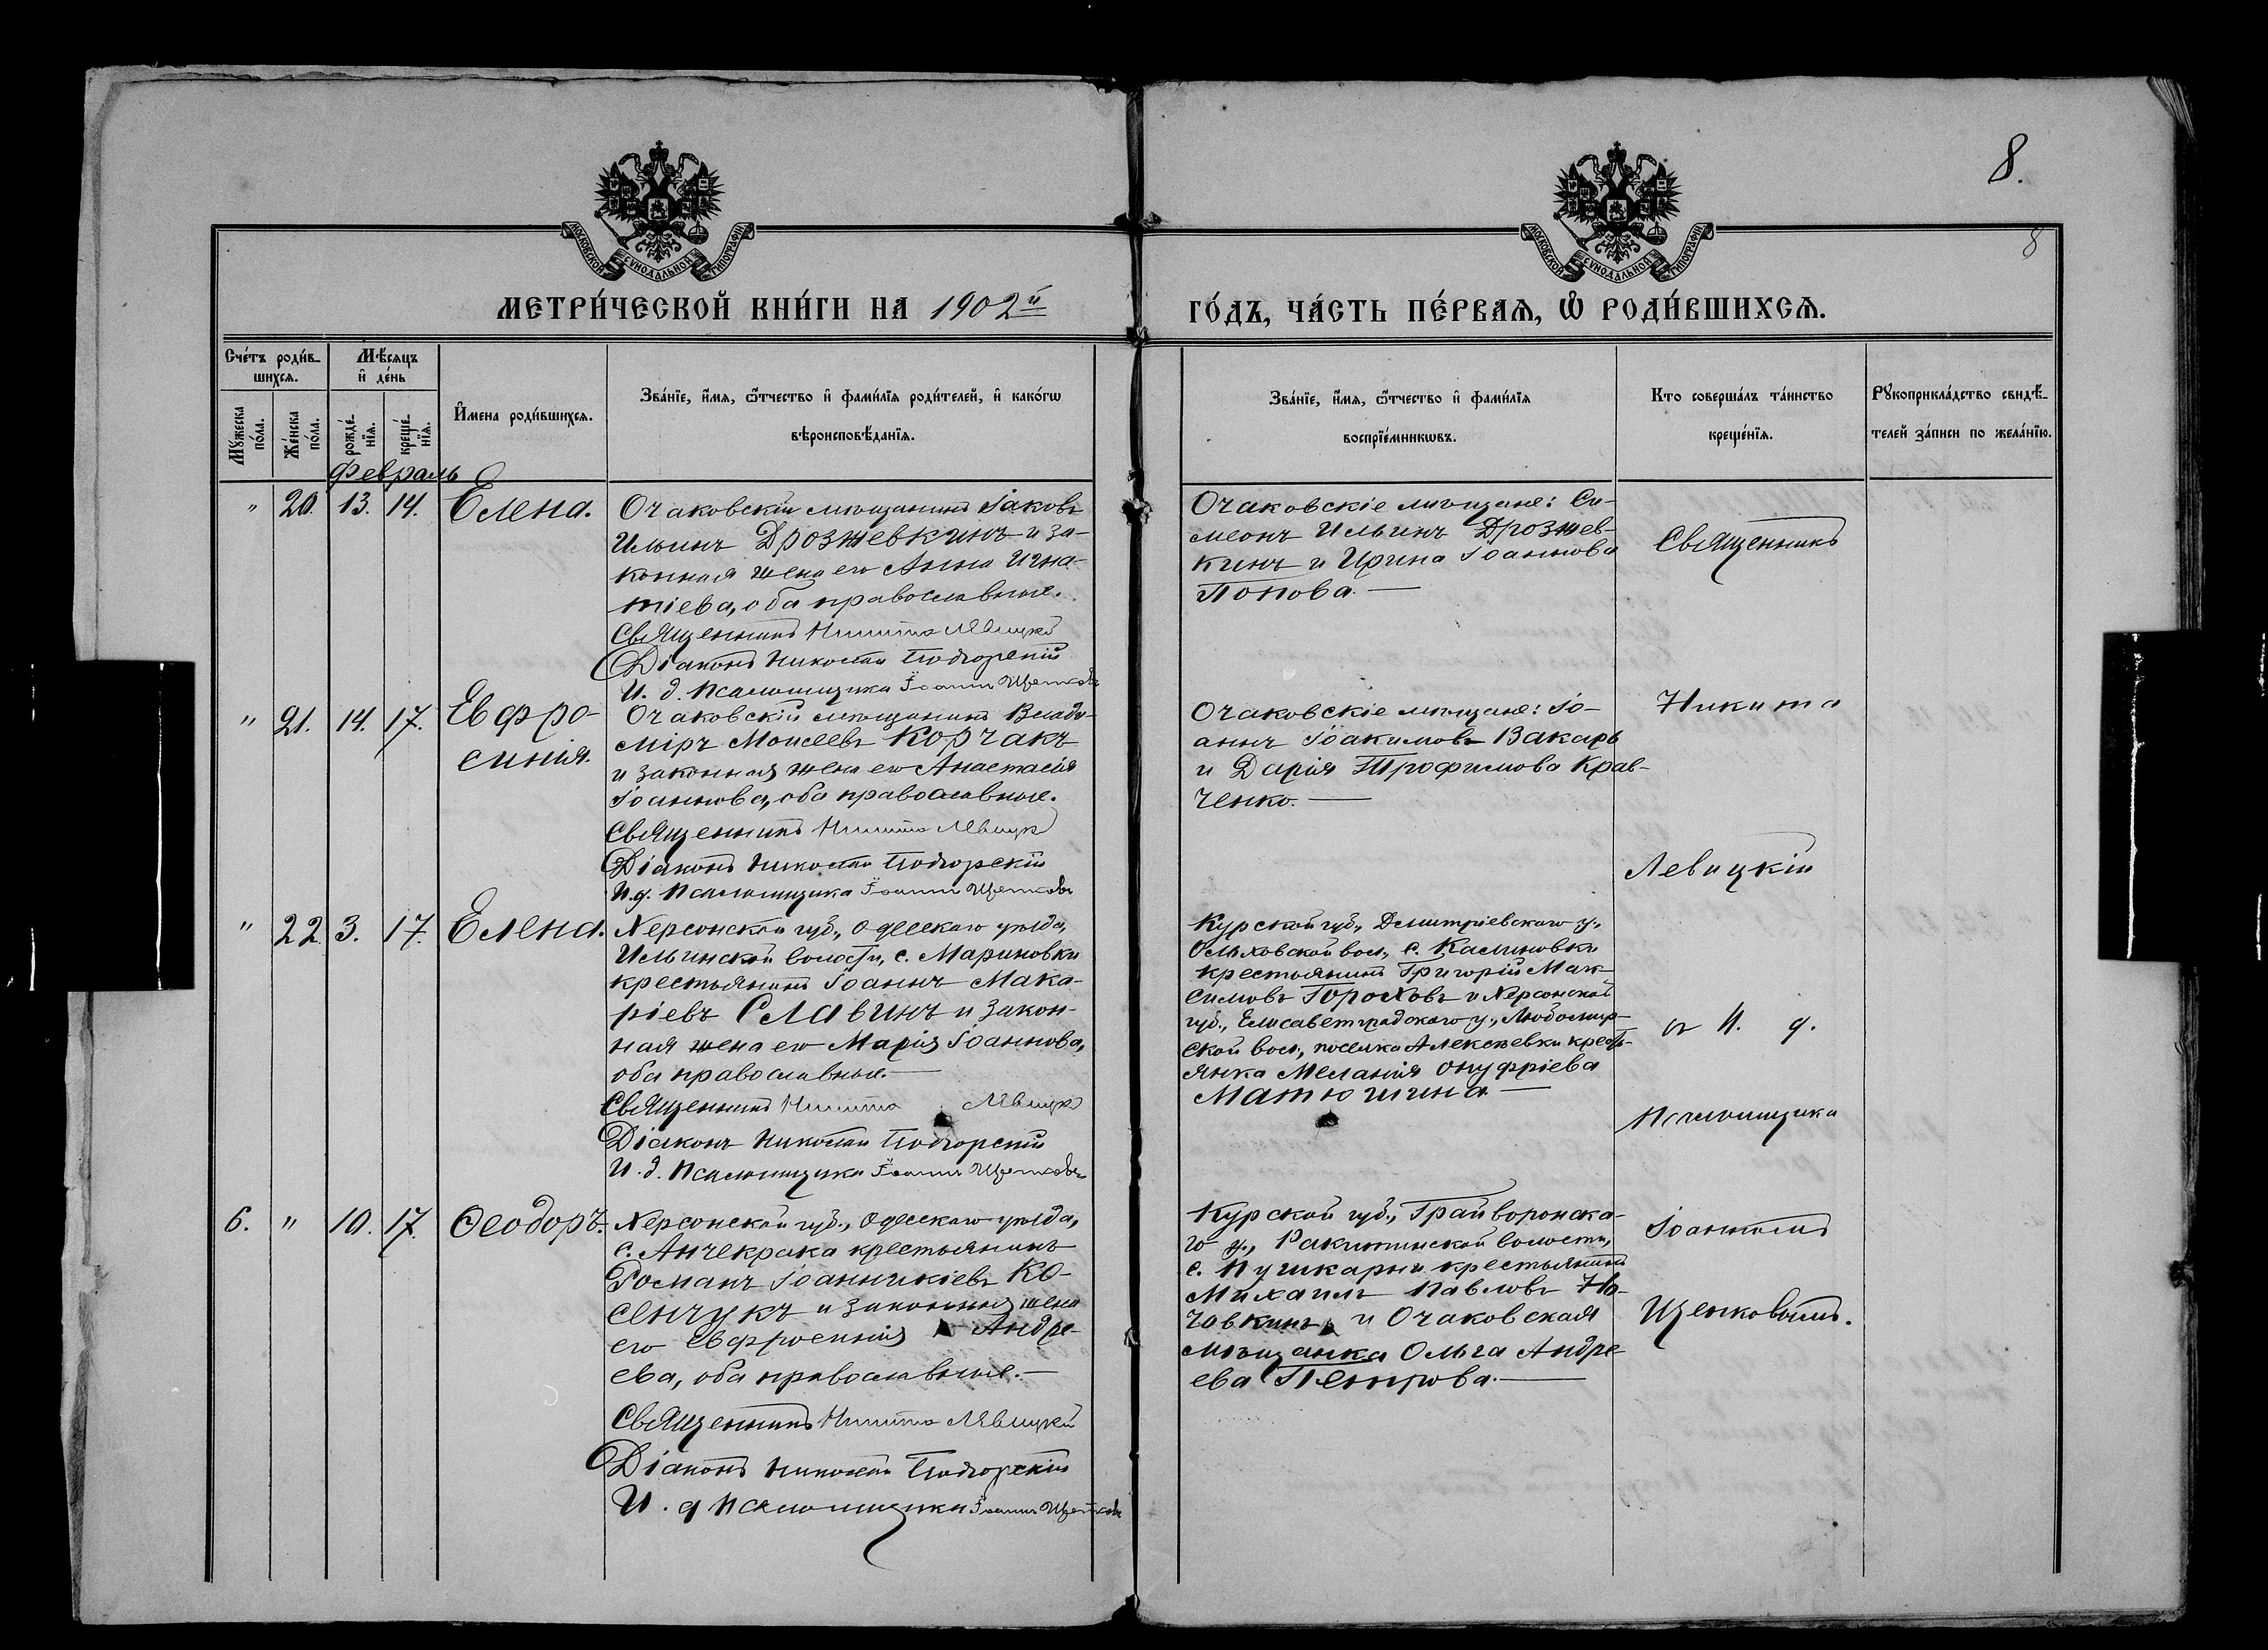 8.
8
МОСКОВСКОЙ СѴНОДАЛЬНОЙ ТИПОГРАФІИ
МОСКОВСКОЙ СѴНОДАЛЬНОЙ ТИПОГРАФІИ
МЕТРИ́ЧЕСКОЙ КНИ́ГИ НА 1902й
ГО́ДЪ, ЧА́СТЬ ПЕ́РВАЯ, Ѽ РОДИ́ВШИХСЯ.
Сче́тъ роди́в-
шихся.
Мѣ́сяцъ
и҆ де́нь
Мꙋ́жеска
по́ла.
Же́нска
по́ла.
рожде́-
нїя.
креще́-
нїя.
И҆мена роди́вшихся.
Зва́нїе, и҆́мя, ѻ҆́тчество и҆ фами́лїя роди́телей, и҆ како́гѡ
вѣроисповѣ́данїя.
Зва́нїе, и҆́мя, ѻ҆́тчество и҆ фами́лїя
воспрїе́мникѡвъ.
Кто соверша́лъ та́инство
креще́нїя.
Рꙋкоприкла́дство свидѣ́-
телей за́писи по жела́нїю.
Февраль
" 20. 13. 14. Елена.
Очаковскій мѣщанинъ Іаковъ
Ильинъ Дрозжевкинъ и за-
конная жена его Анна Игна-
тіева, оба православные.
Священникъ Никита Левицкій
Діаконъ Николай Подгорскій
И. д. Псаломщика Іоаннъ
Очаковскіе мѣщане: Си-
меонъ Ильинъ Дрозжев-
кинъ и Ирина Іоаннова
Попова.
Священникъ
" 21. 14. 17. Евфро-
синія.
Очаковскій мѣщанинъ Влади-
міръ Моисеевъ Корчакъ
и законная жена его Анастасія
Іоаннова, оба православные.
Священникъ Никита Левицкій
Діаконъ Николай Подгорскій
И. д. Псаломщика Іоаннъ
Очаковскіе мѣщане: Іо-
аннъ Іоакимовъ Вакарь
и Дарія Трофимова Крав-
ченко.
Никита
Левицкій
" 22. 3. 17. Елена.
Херсонской губ., Одесскаго уѣзда,
Ильинской волости, с. Мариновки
крестьянинъ Іоаннъ Мака-
ріевъ Славинъ и закон-
ная жена его Марія Іоаннова,
оба православные.
Священникъ Никита Левицкій
Діаконъ Николай Подгорскій
И. д. Псаломщика Іоаннъ
Курской губ., Дмитріевскаго у.,
Ольховской вол., с. Калиновки
крестьянинъ Григорій Мак-
симовъ Гороховъ и Херсонской
губ., Елисаветградскаго у., Любомир-
ской вол., поселка Алексѣевки кресть-
янка Меланія Онуфріева
Матюшина.
съ И. д.
Псаломщика
6. " 10. 17. Ѳеодоръ.
Херсонской губ., Одесскаго уѣзда,
с. Анчекрака крестьянинъ
Романъ Іоанникіевъ Ко-
сенчукъ и законная жена
его Евфросинія Андре-
ева, оба православные.
Священникъ Никита Левицкій
Діаконъ Николай Подгорскій
И. д. Псаломщика Іоаннъ
Курской губ., Грайворонска-
го у., Ракитинской волости,
с. Пушкарни крестьянинъ
Михаилъ Павловъ
и Очаковская
мѣщанка Ольга Андре-
ева Петрова.
Іоанномъ